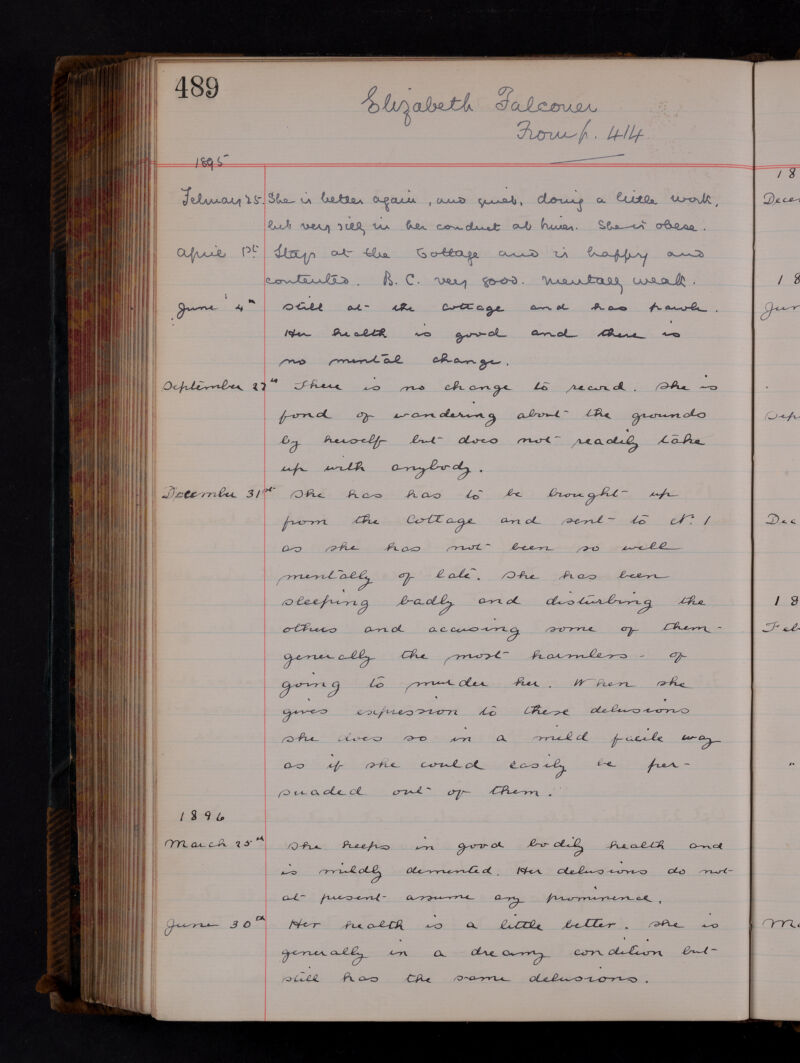 489
Elizabeth Falconer
From p. 414
1895
February 25. She is better again, and quiet, doing a little work,
but very silly in her conduct at times. She is obese.
April 1st Stays at the Cottage and is happy and
contented. B. C. very good. Mentally weak.
June 4th Still at the cottage and has parole.
Her health is good and there is
no mental change.
September 27th There is no change to record. She is
fond of wandering about the grounds
by herself but does not readily take
up with anybody.
December 31st She has has to be brought up
from the Cottage and sent to No. 1
as she has not been so well
mentally of late. She has been
sleeping badly and disturbing the
others and accusing some of them -
generally the most harmless - of
going to murder her. When she
gives expression to these delusions
she does so in a mild facile way
as if she could easily be per-
suaded out of them.
1896
March 25th She keeps in good bodily health and
is mildly demented. Her delusions do not
at present assume any prominence.
June 30th Her health is a little better. She is
generally in a dreamy condition but
still has the same delusions.
18
Dece
18
Jun
Sep
Dec
18
Feb
"
Ma